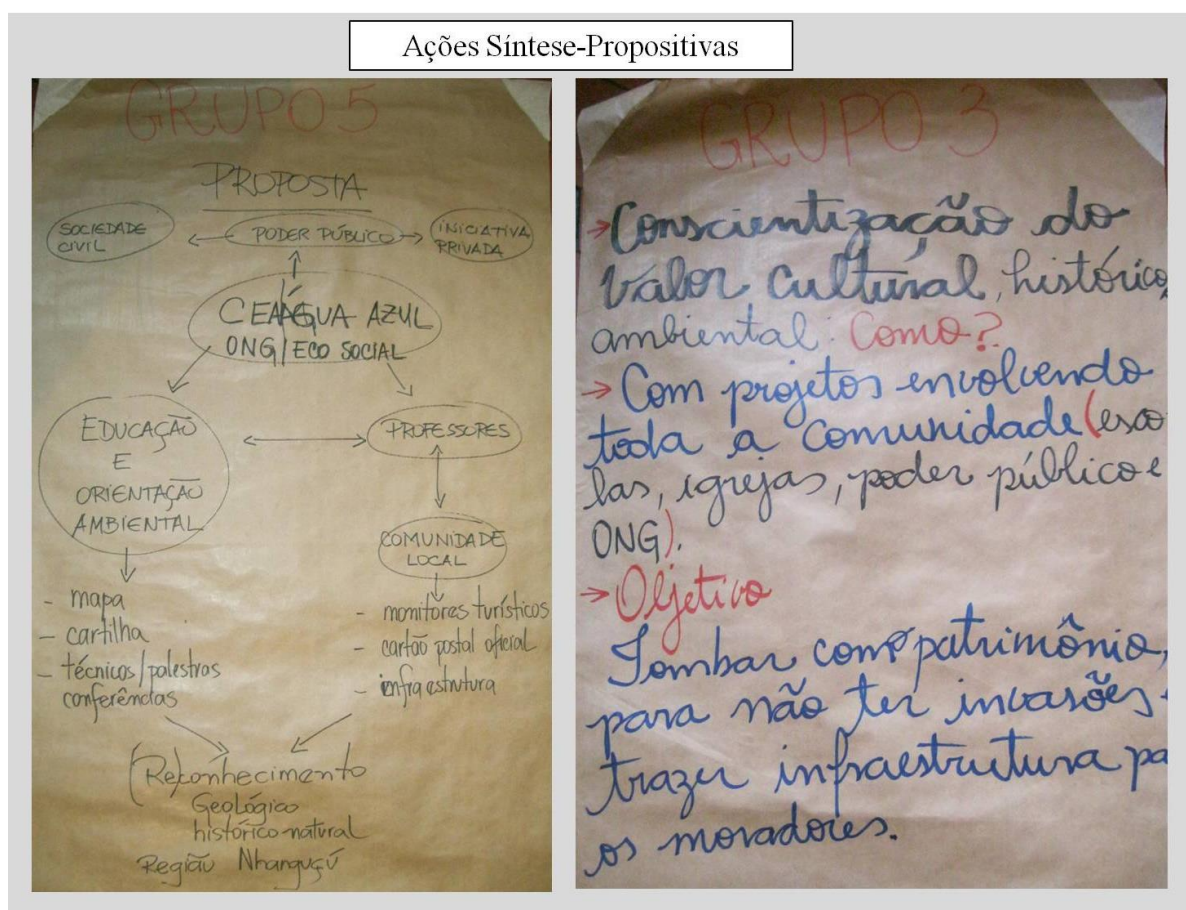 Ações Síntese-Propositivas
GRUPO 5
PROPOSTA
SOCIEDADE
CIVIL
PODER PÚBLICO
INICIATIVA
PRIVADA
CEA ÁGUA AZUL
ONG/ECO SOCIAL
EDUCAÇÃO
E
ORIENTAÇÃO
AMBIENTAL
PROFESSORES
COMUNIDADE
LOCAL
- mapa
- cartilha
- técnicos/palestras
conferências
- monitores turísticos
- cartão postal oficial
- infra estrutura
(Reconhecimento
Geológico
histórico-natural
Região Nhanguçú
GRUPO 3
→ Conscientização do
Valor Cultural, histórico,
ambiental: Como?
→ Com projetos envolvendo
toda a Comunidade (esco
las, igrejas, poder público e
ONG).
→ Objetivo
Tombar como patrimônio,
para não ter invasões
trazer infraestrutura pa
os moradores.